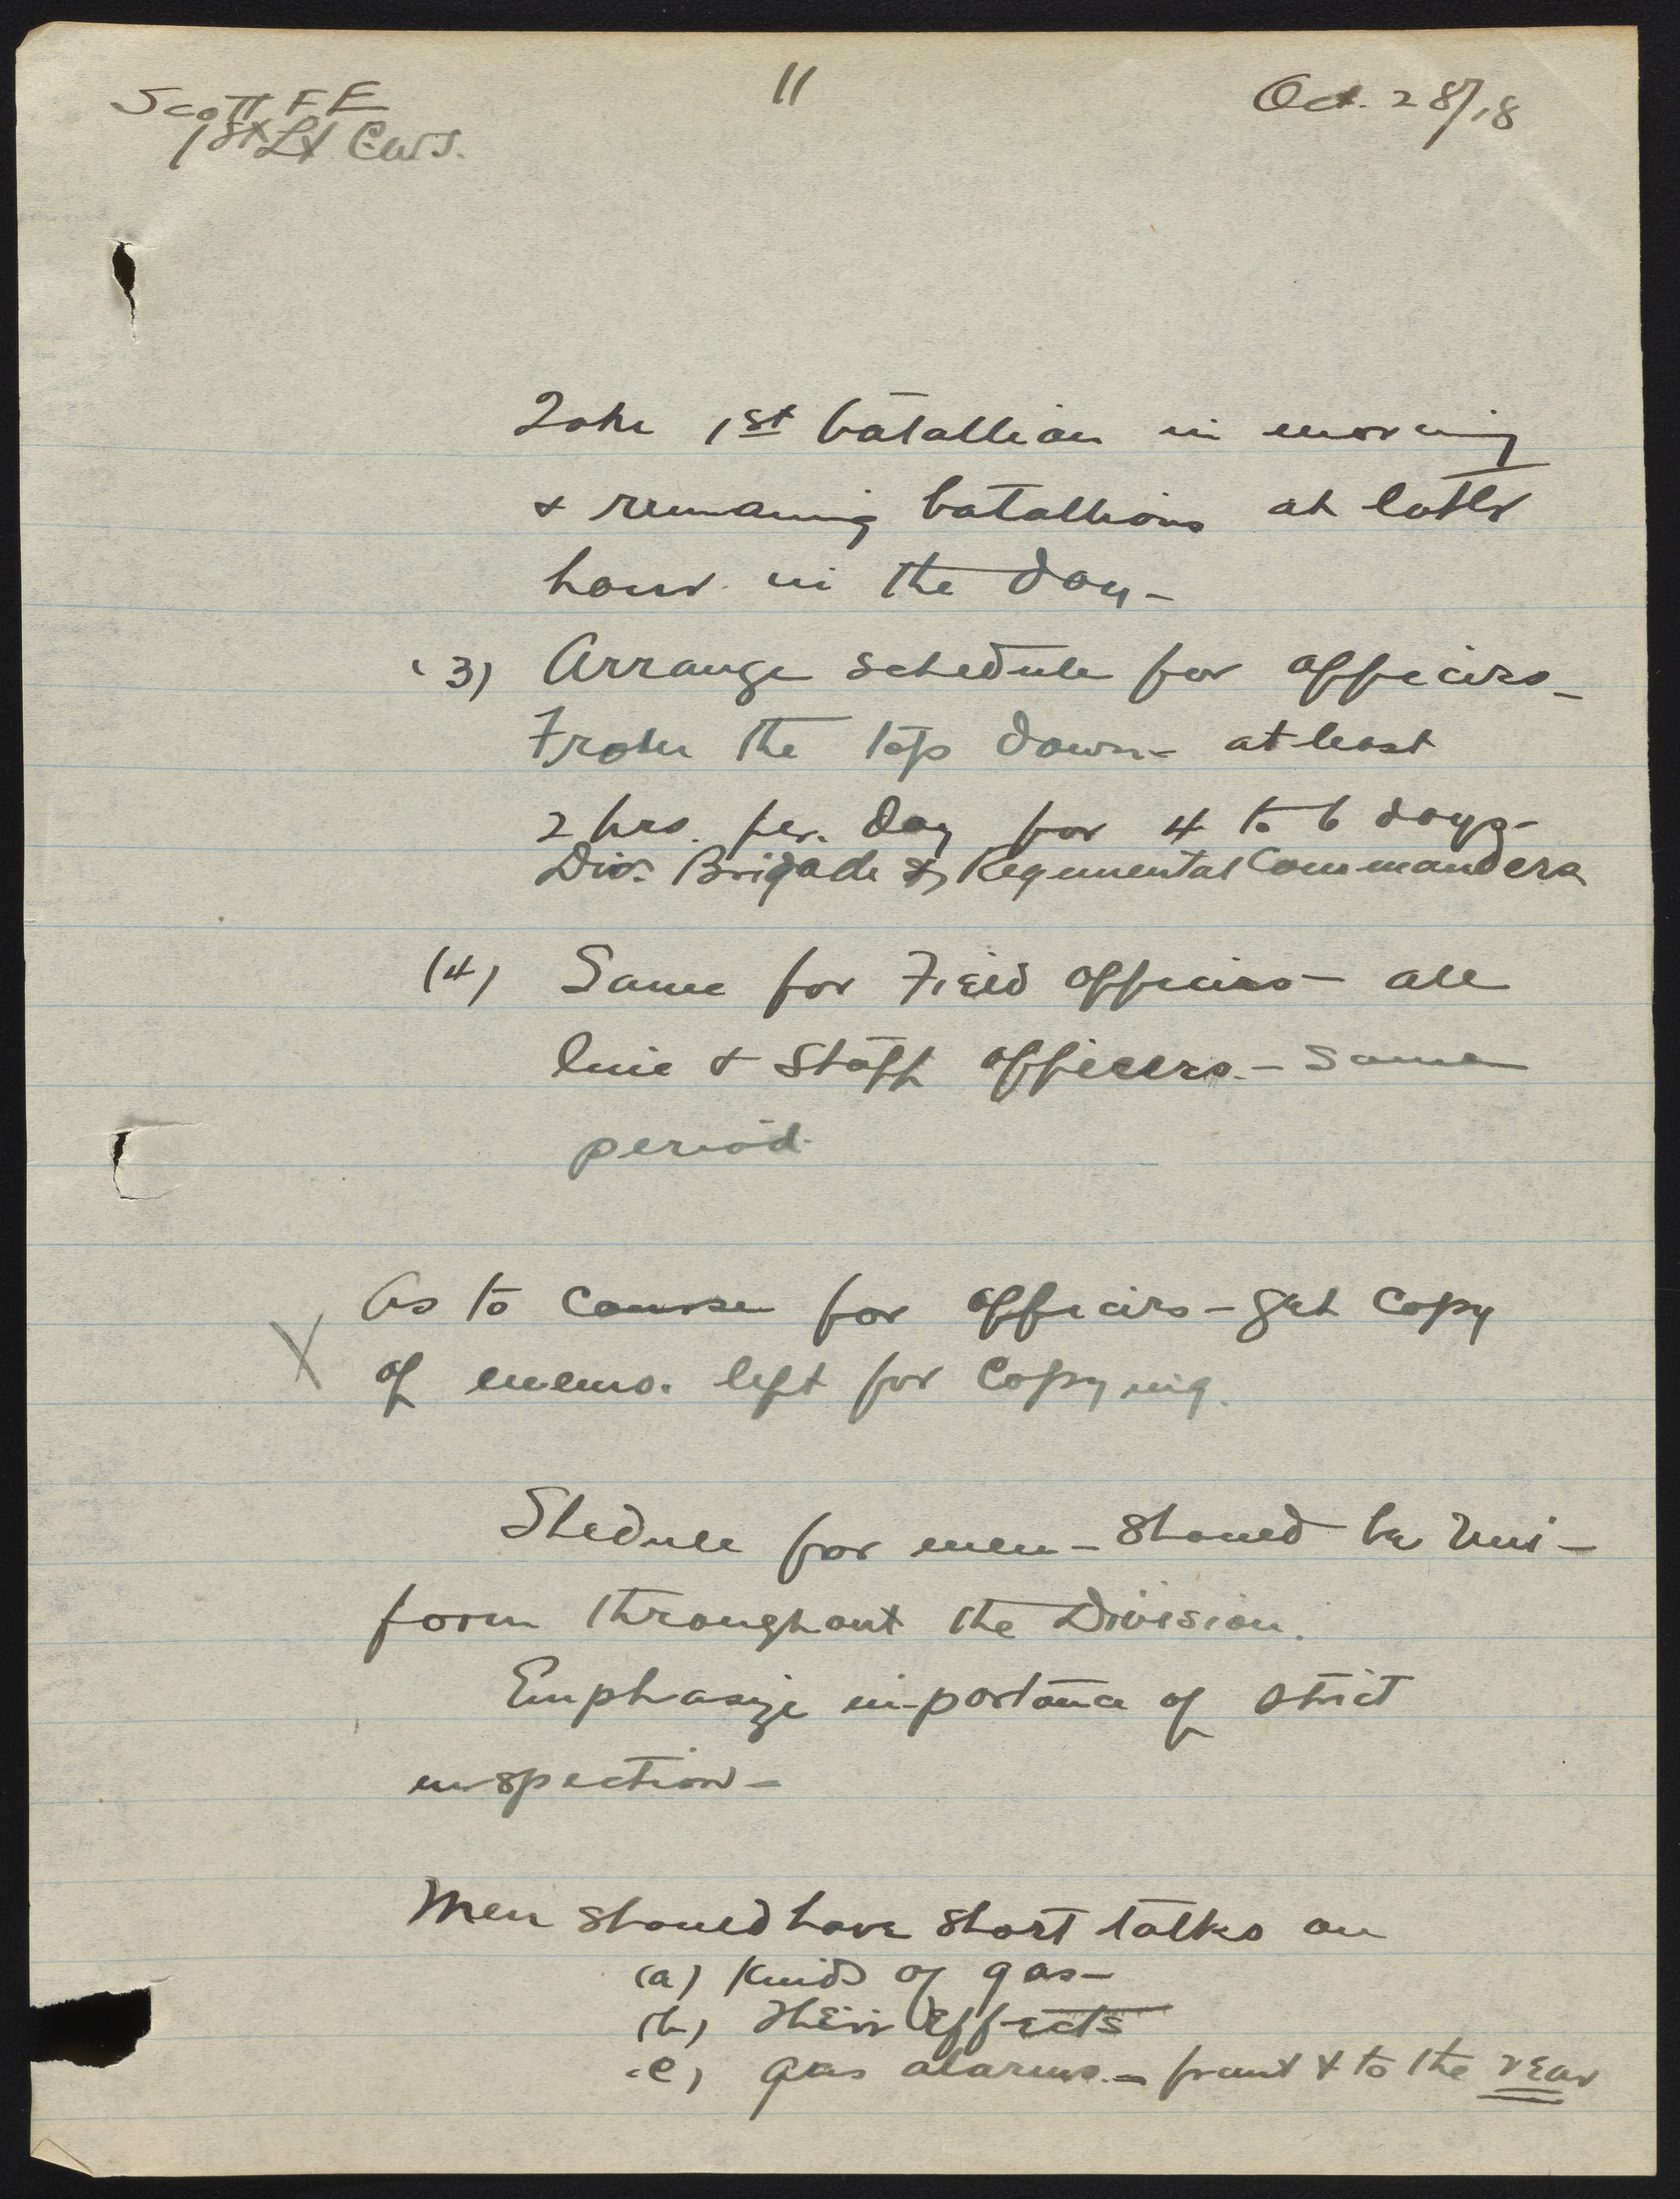 Scott F E
1st Lt C.W.S.
11
Oct. 28/18
Take 1st batallion in morning
& remaining batallions at later
hour in the day -
(3) Arrange schedule for officers -
From the top down - at least
2 hrs. per. day for 4 to 6 days -
Div. Brigade & Regimental Commanders
(4) Same for Field officers - all
line & Staff officers. - same
period.
As to course for officers - get copy
X
of memo. left for copying.
Shedule for men - should be uni-
form throughout the Division.
Emphasize importance of strict
inspection -
Men should have short talks on
(a) Kinds of gas -
(b) Their Effects
(c) gas alarms. - front & to the rear